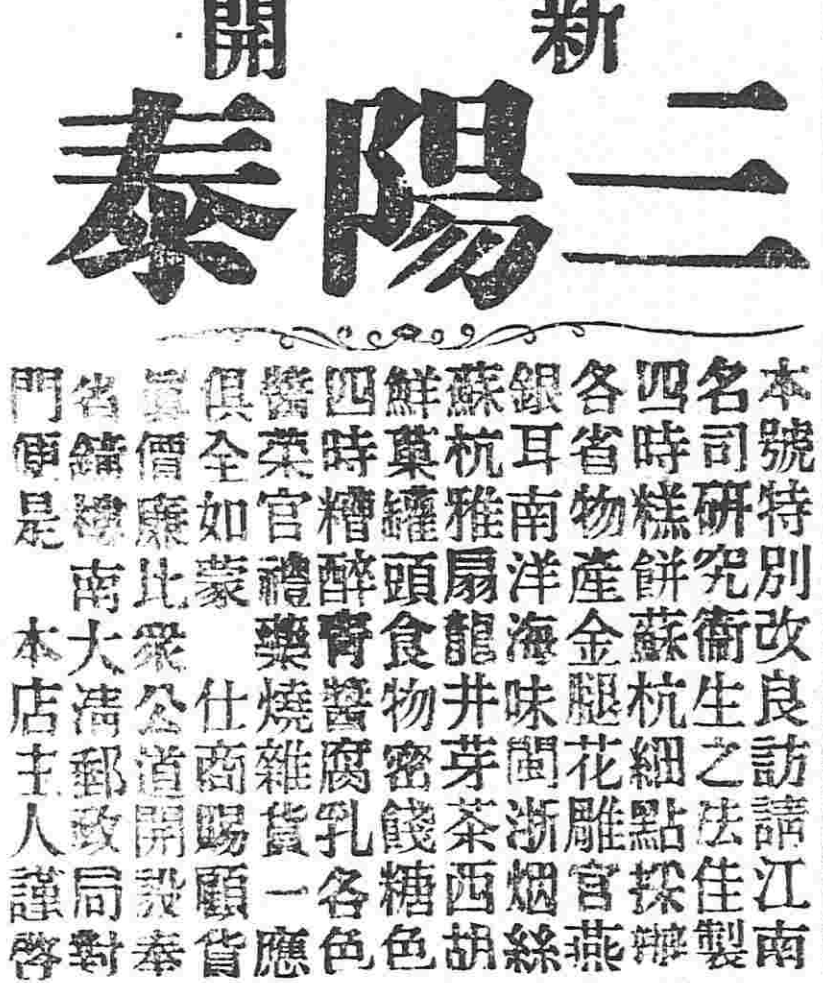 新開
三陽泰
本號特別改良訪請江南
名司研究衞生之法佳製
四時糕餅蘇杭細點採辦
各省物產金腿花雕官燕
銀耳南洋海味閩浙烟絲
蘇杭雅扇龍井芽茶西胡
鮮菓罐頭食物密餞糖色
四時糟醉青醬腐乳各色
醬菜官禮藥燒雜貨一應
俱全如蒙 仕商賜顧貨
眞價廉比衆公道開設奉
省鐘樓南大淸郵政局對
門便是 本店主人謹啓